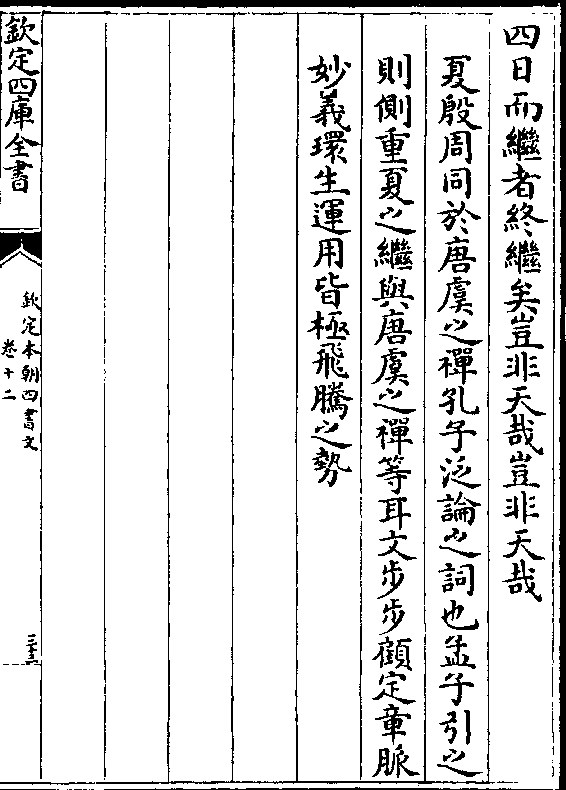 四日而繼者終繼矣豈非天哉豈非天哉
夏殷周同於唐虞之禪孔子泛論之詞也孟子引之
則側重夏之繼與唐虞之禪等耳文步步顧定章脈
妙義環生運用皆極飛騰之勢
欽定四庫全書
欽定本朝四書文
卷十二
三三